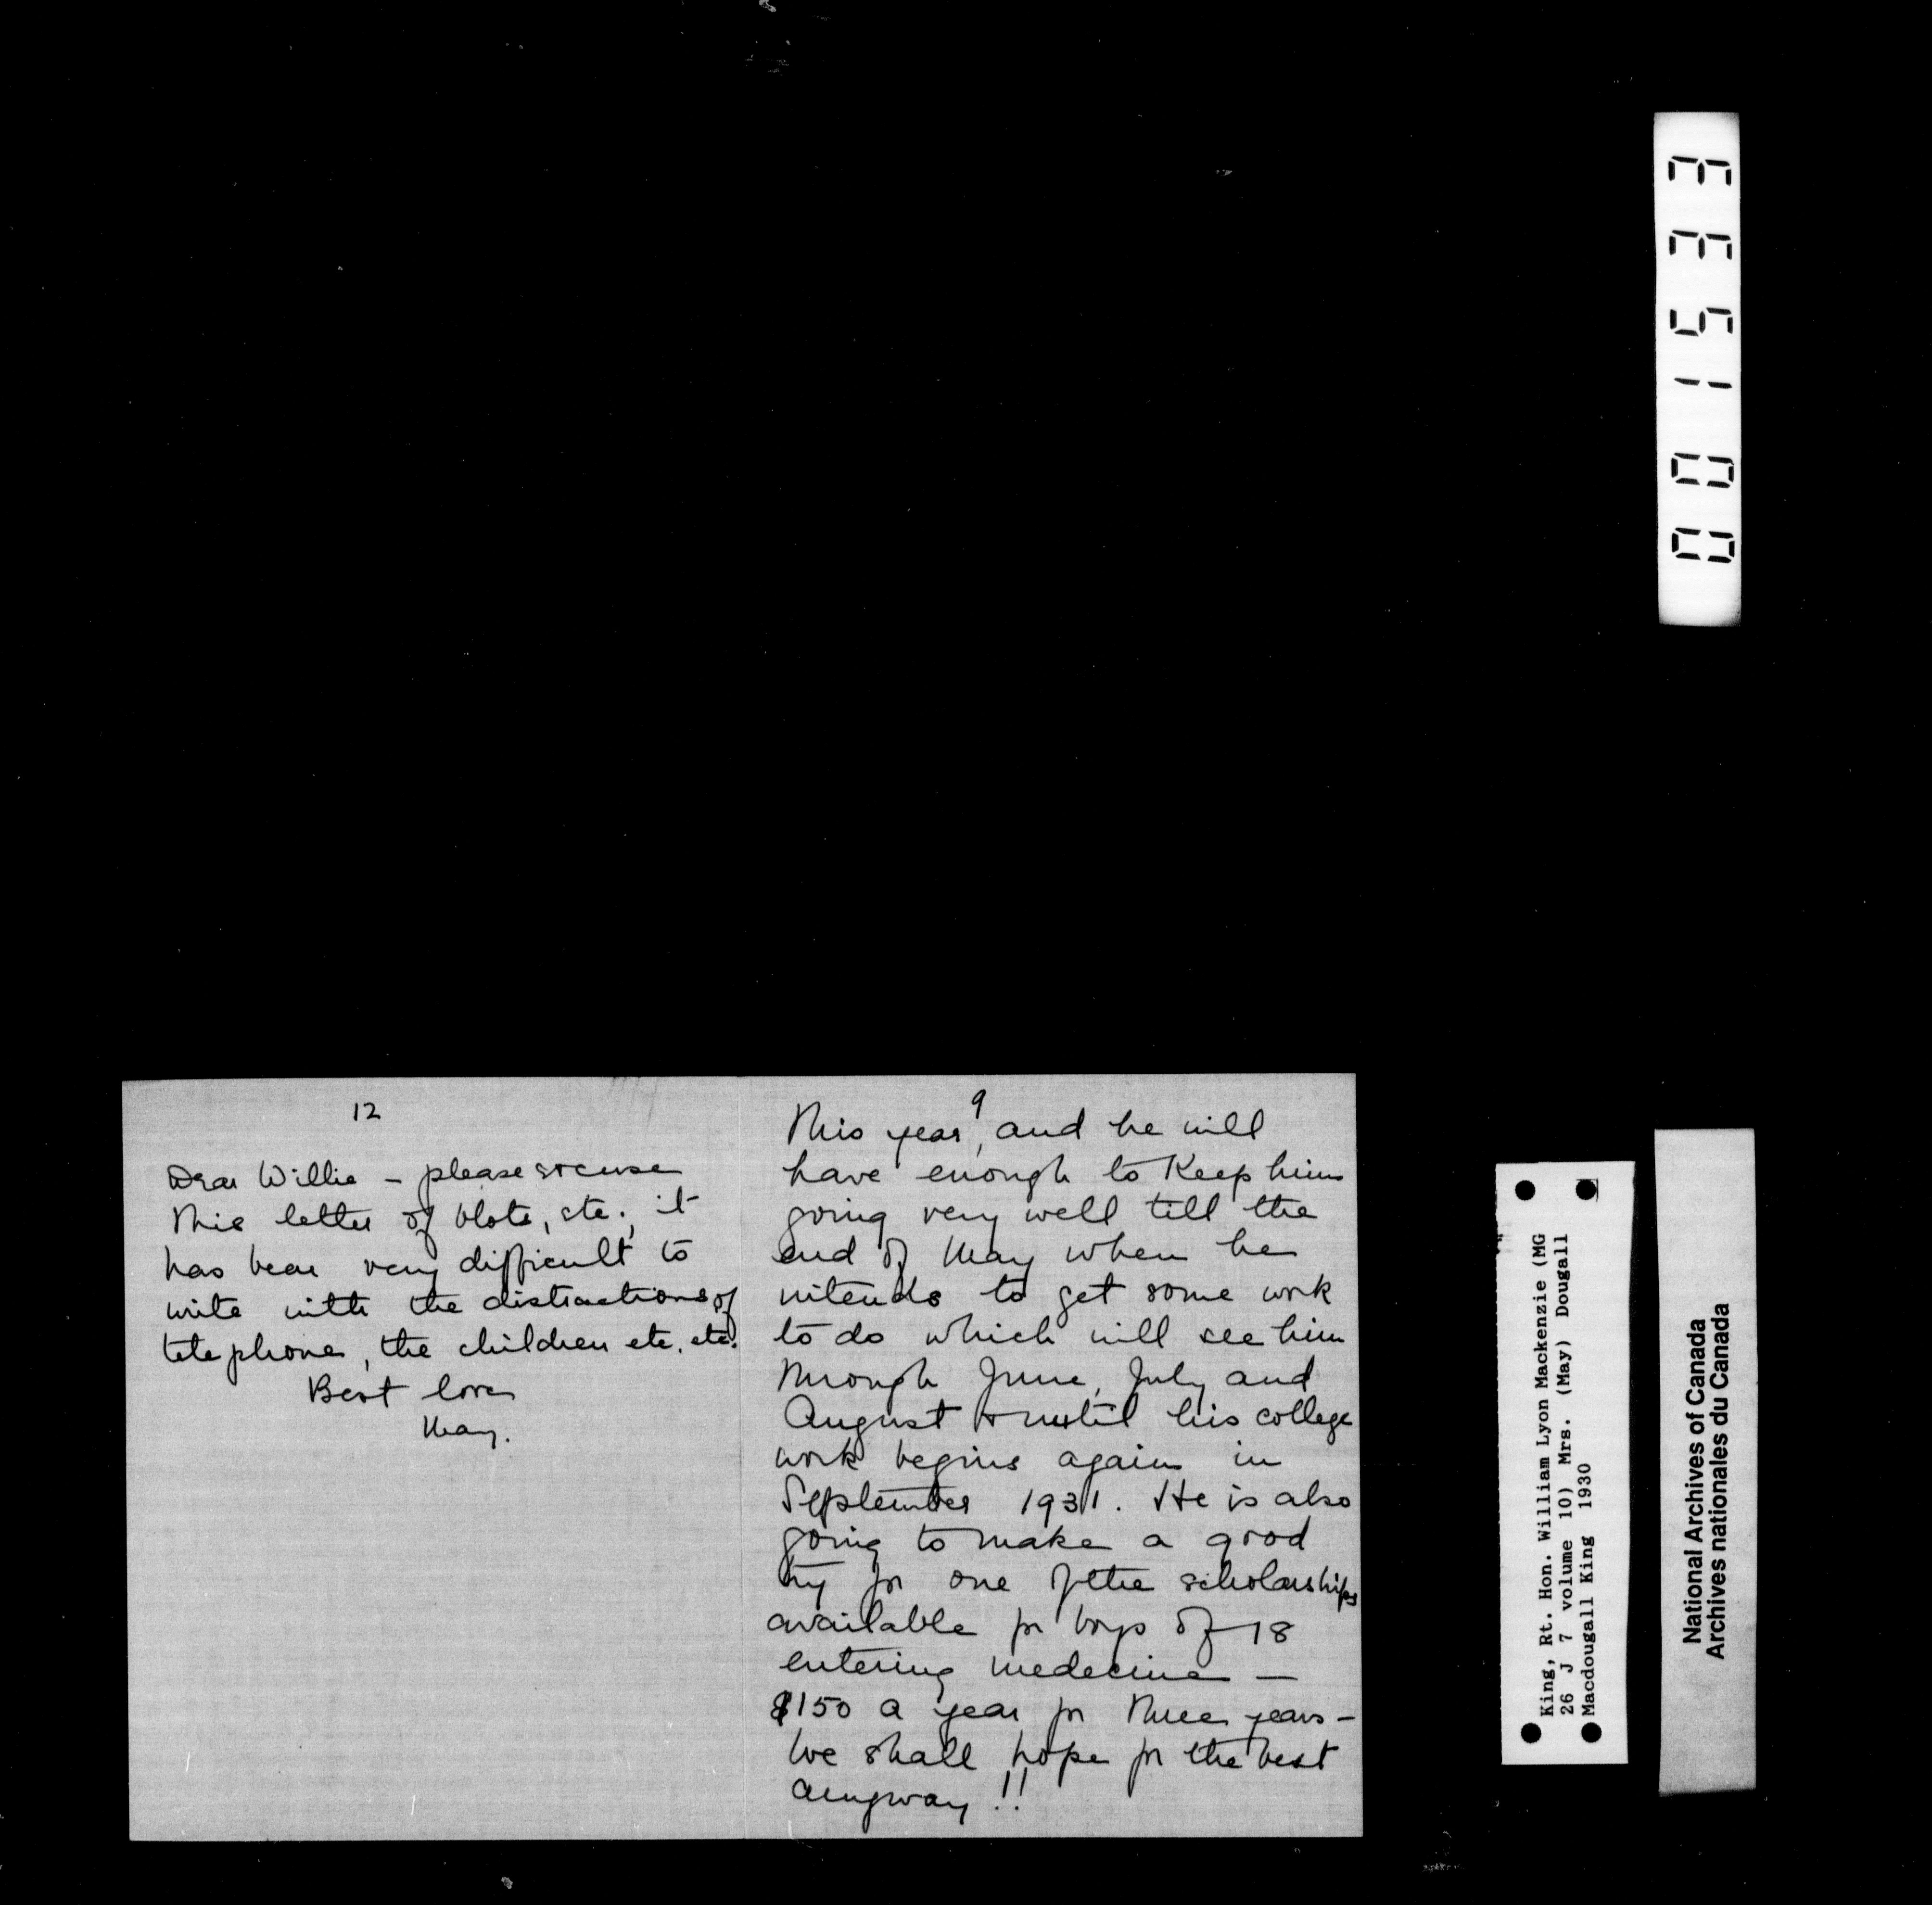 12
Dear Willie – please excuse
this letter of blots, etc.; it
has been very difficult to
write with the distractions of
telephone, the children etc. etc.
Best love
May.
9
this year, and he will
have enough to keep him
going very well till the
end of May when he
intends to get some work
to do which will see him
through June, July and
August & until his college
work begins again in
September 1931. He is also
going to make a good
try for one of the scholarships
available for boys of 18
entering medecine –
$150 a year for three years –
We shall hope for the best
anyway!!
001533
King, Rt. Hon. William Lyon Mackenzie (MG
26 J 7 volume 10) Mrs. (May) Dougall
Macdougall King 1930
National Archives of Canada
Archives nationales du Canada